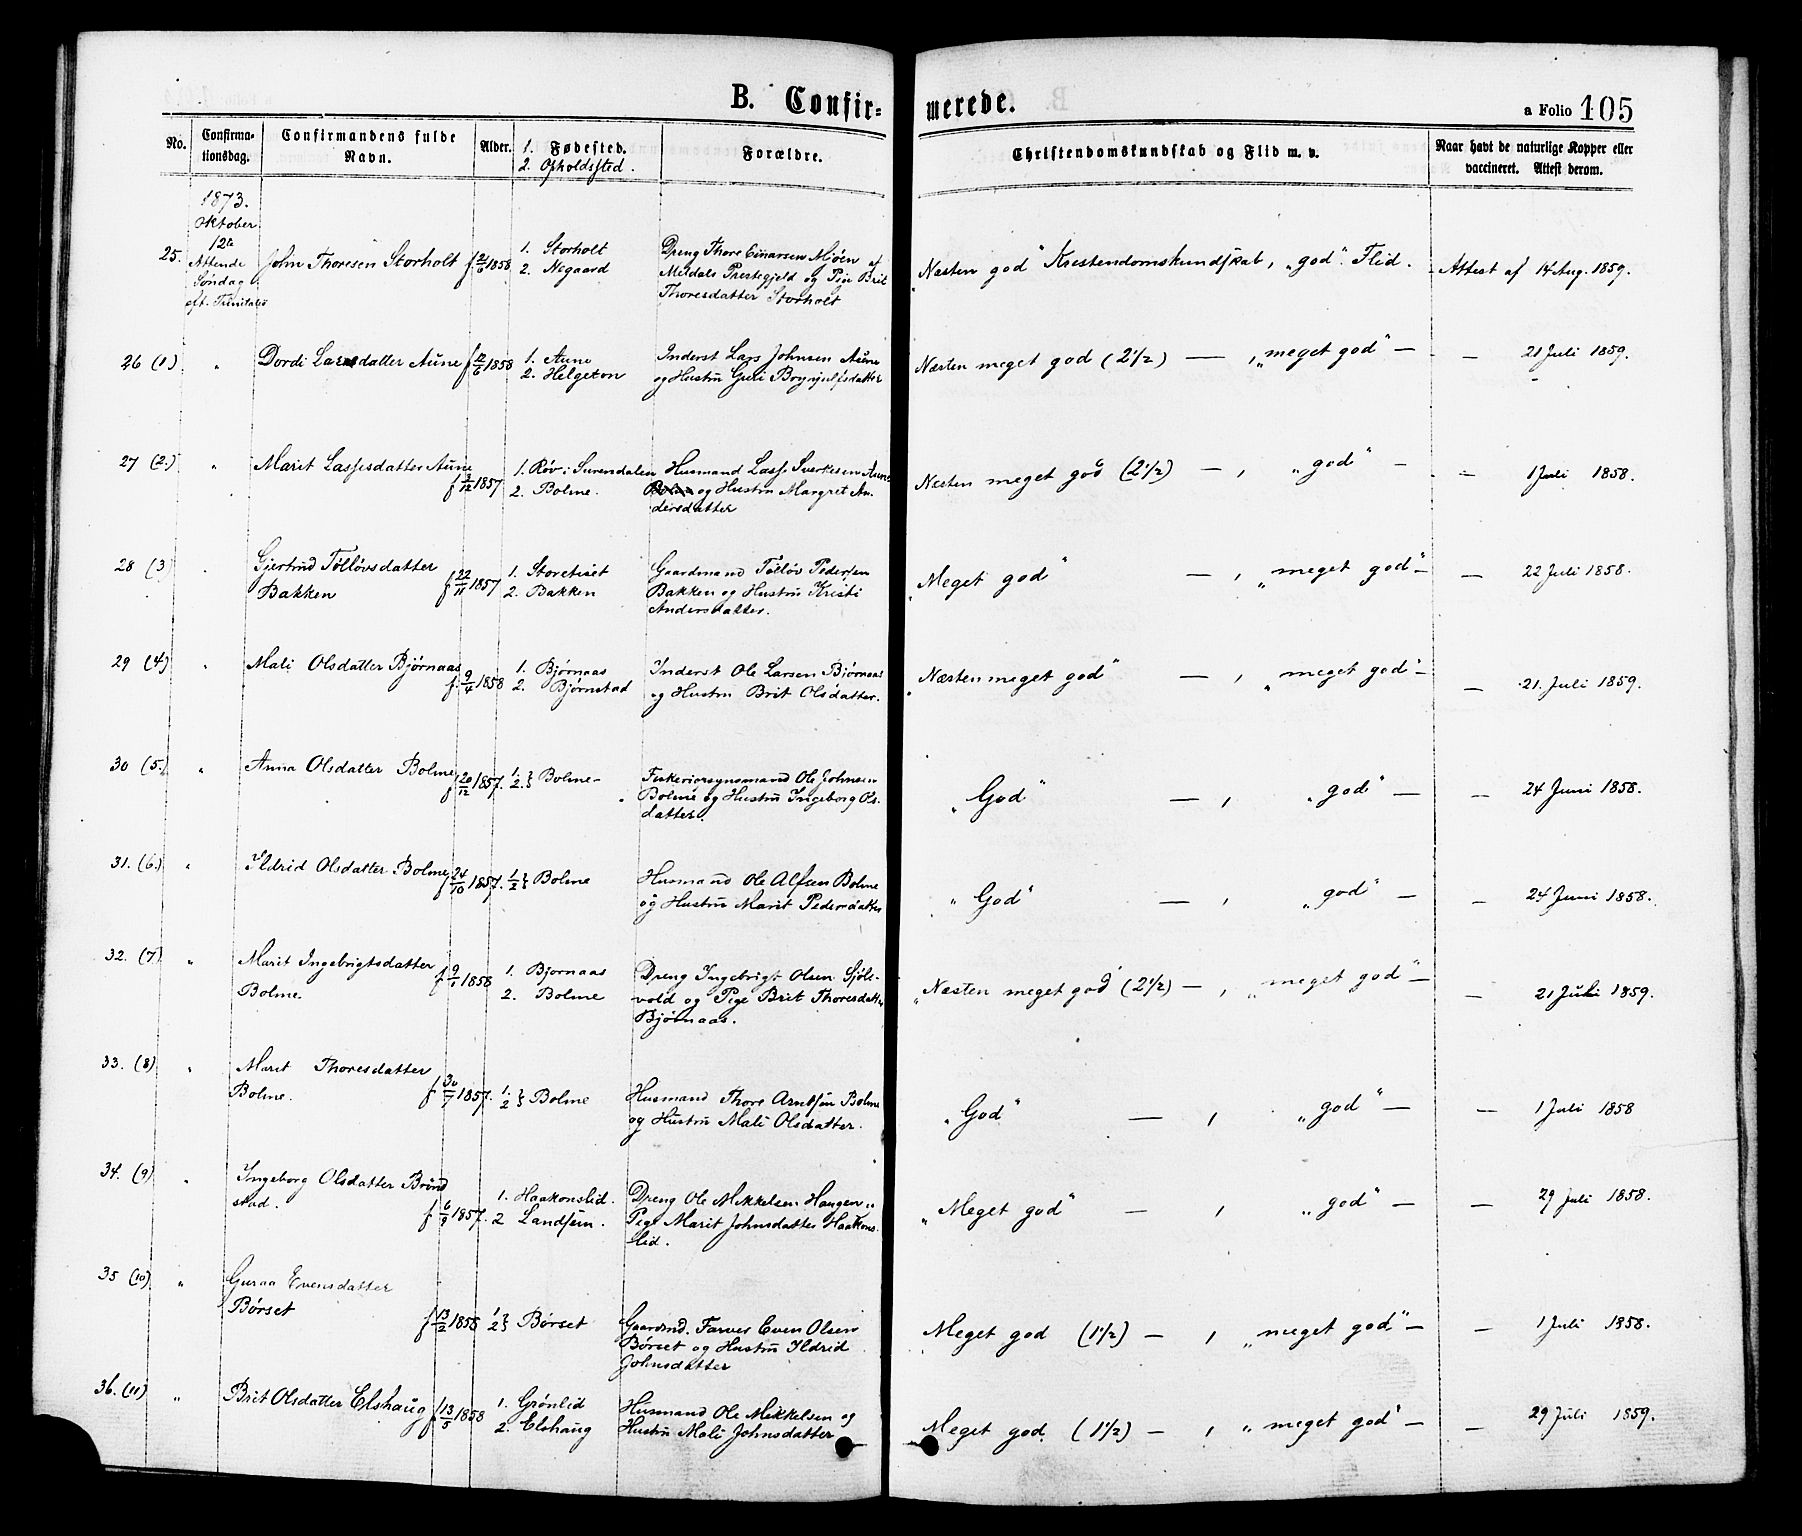 B. Confir-
merede.
a Folio 105
No.
Confirma-
tionsdag.
Confirmandens fulde
Navn.
Alder.
1. Fødested.
2. Opholdssted.
Forældre.
Christendomskundskab og Flid m. v.
Naar havt de naturlige Kopper eller
vaccineret. Attest derom.
1873.
Oktober
12te
Attende
Søndag
eft. Trinitatis
25. John Thoresen Storholt f 21/6 1858
1. Storholt
2. Negaard
Dreng Thore Einarsen Mjøen af
Meldals Prestegjeld og Pige Brit
Thoresdatter Storholt
"Næsten god" Kristendomskundskab, "god". Flid.
Attest af 14 Aug. 1859.
26 (1) " Dordi Larsdatter Aune f 12/6 1858
1. Aune
2. Helgeton
Inderst Lars Johnsen Aune
og Hustru Guri Brynjulfsdatter
Næsten meget god (2 1/2) — "meget god" —
— 21 Juli 1859.
27 (2.) " Marit Lassesdatter Aune
f 3/12 1857
1. Røv i Surendalen
2. Bolme.
Husmand Lasse Sverkesen Aune
Bolme og Hustru Margret An-
dersdatter
Næsten meget god (2 1/2) — , "god" —
— 1 Juli 1858.
28 (3 " Gjertrud Tølløvsdatter
Bakken f 22/11 1857
1. Storetiset
2. Bakken
Gaardmand Tølløv Pedersen
Bakken og Hustru Kristi
Andersdatter.
"Meget god" — , "meget god" —
— 22 Juli 1858.
29 (4) " Mali Olsdatter Bjørnaas
f. 9/4 1858
1. Bjørnaas
2. Bjørnstad
Inderst Ole Larsen Bjørnaas
og Hustru Brit Olsdatter.
"Næsten meget god" — , "meget god" —
— 21. Juli 1859.
30 (5.) " Anna Olsdatter Bolme
f 20/12 1857.
1./2. } Bolme
Fiskeriopsynsmand Ole Johnsen
Bolme og Hustru Ingeborg Ols-
datter.
"God" — , "god" —
— 24 Juni 1858.
31. (6.) " Ildrid Olsdatter Bolme
f 24/10 1857.
1/2 } Bolme
Husmand Ole Alfsen Bolme
og Hustru Marit Pedersdatter
"God" — , "god" —
— 24 Juni 1858.
32. (7) " Marit Ingebrigtsdatter
Bolme. f 9/1 1858
1. Bjørnaas
2. Bolme
Dreng Ingebrigt Olsen Sjøls-
vold og Pige Brit Thoresdatter
Bjørnaas.
"Næsten meget god" (2 1/2) — , "meget god" —
— 21 Juli 1859.
33. (8) " Marit Thoresdatter
Bolme. f 30/7 1857.
1./2 } Bolme
Husmand Thore Arntsen Bolme
og Hustru Mali Olsdatter.
"God" — , "god" —
— 1 Juli 1858
34. (9) " Ingeborg Olsdatter Brønd
stad. f 6/9 1857.
1. Haakonslid.
2 Landsem.
Dreng Ole Mikkelsen Haugen
Pige Marit Johnsdatter Haakons-
lid.
"Meget god" — , "god" —
— 29 Juli 1858.
35 (10) " Guraa Evensdatter
Børset f 13/2 1858
1/2 } Børset
Gaardmd. Farver Even Olsen
Børset og Hustru Ildrid
Johnsdatter
Meget god (1 1/2) — , "meget god" —
— 1 Juli 1858.
36. (11) " Brit Olsdatter Elshaug f 13/5 1858
1. Grønlid
2. Elshaug
Husmand Ole Mikkelsen og
Hustru Mali Johnsdatter
Meget god. (1 1/2) — , "meget god" —
— 29 Juli 1859.